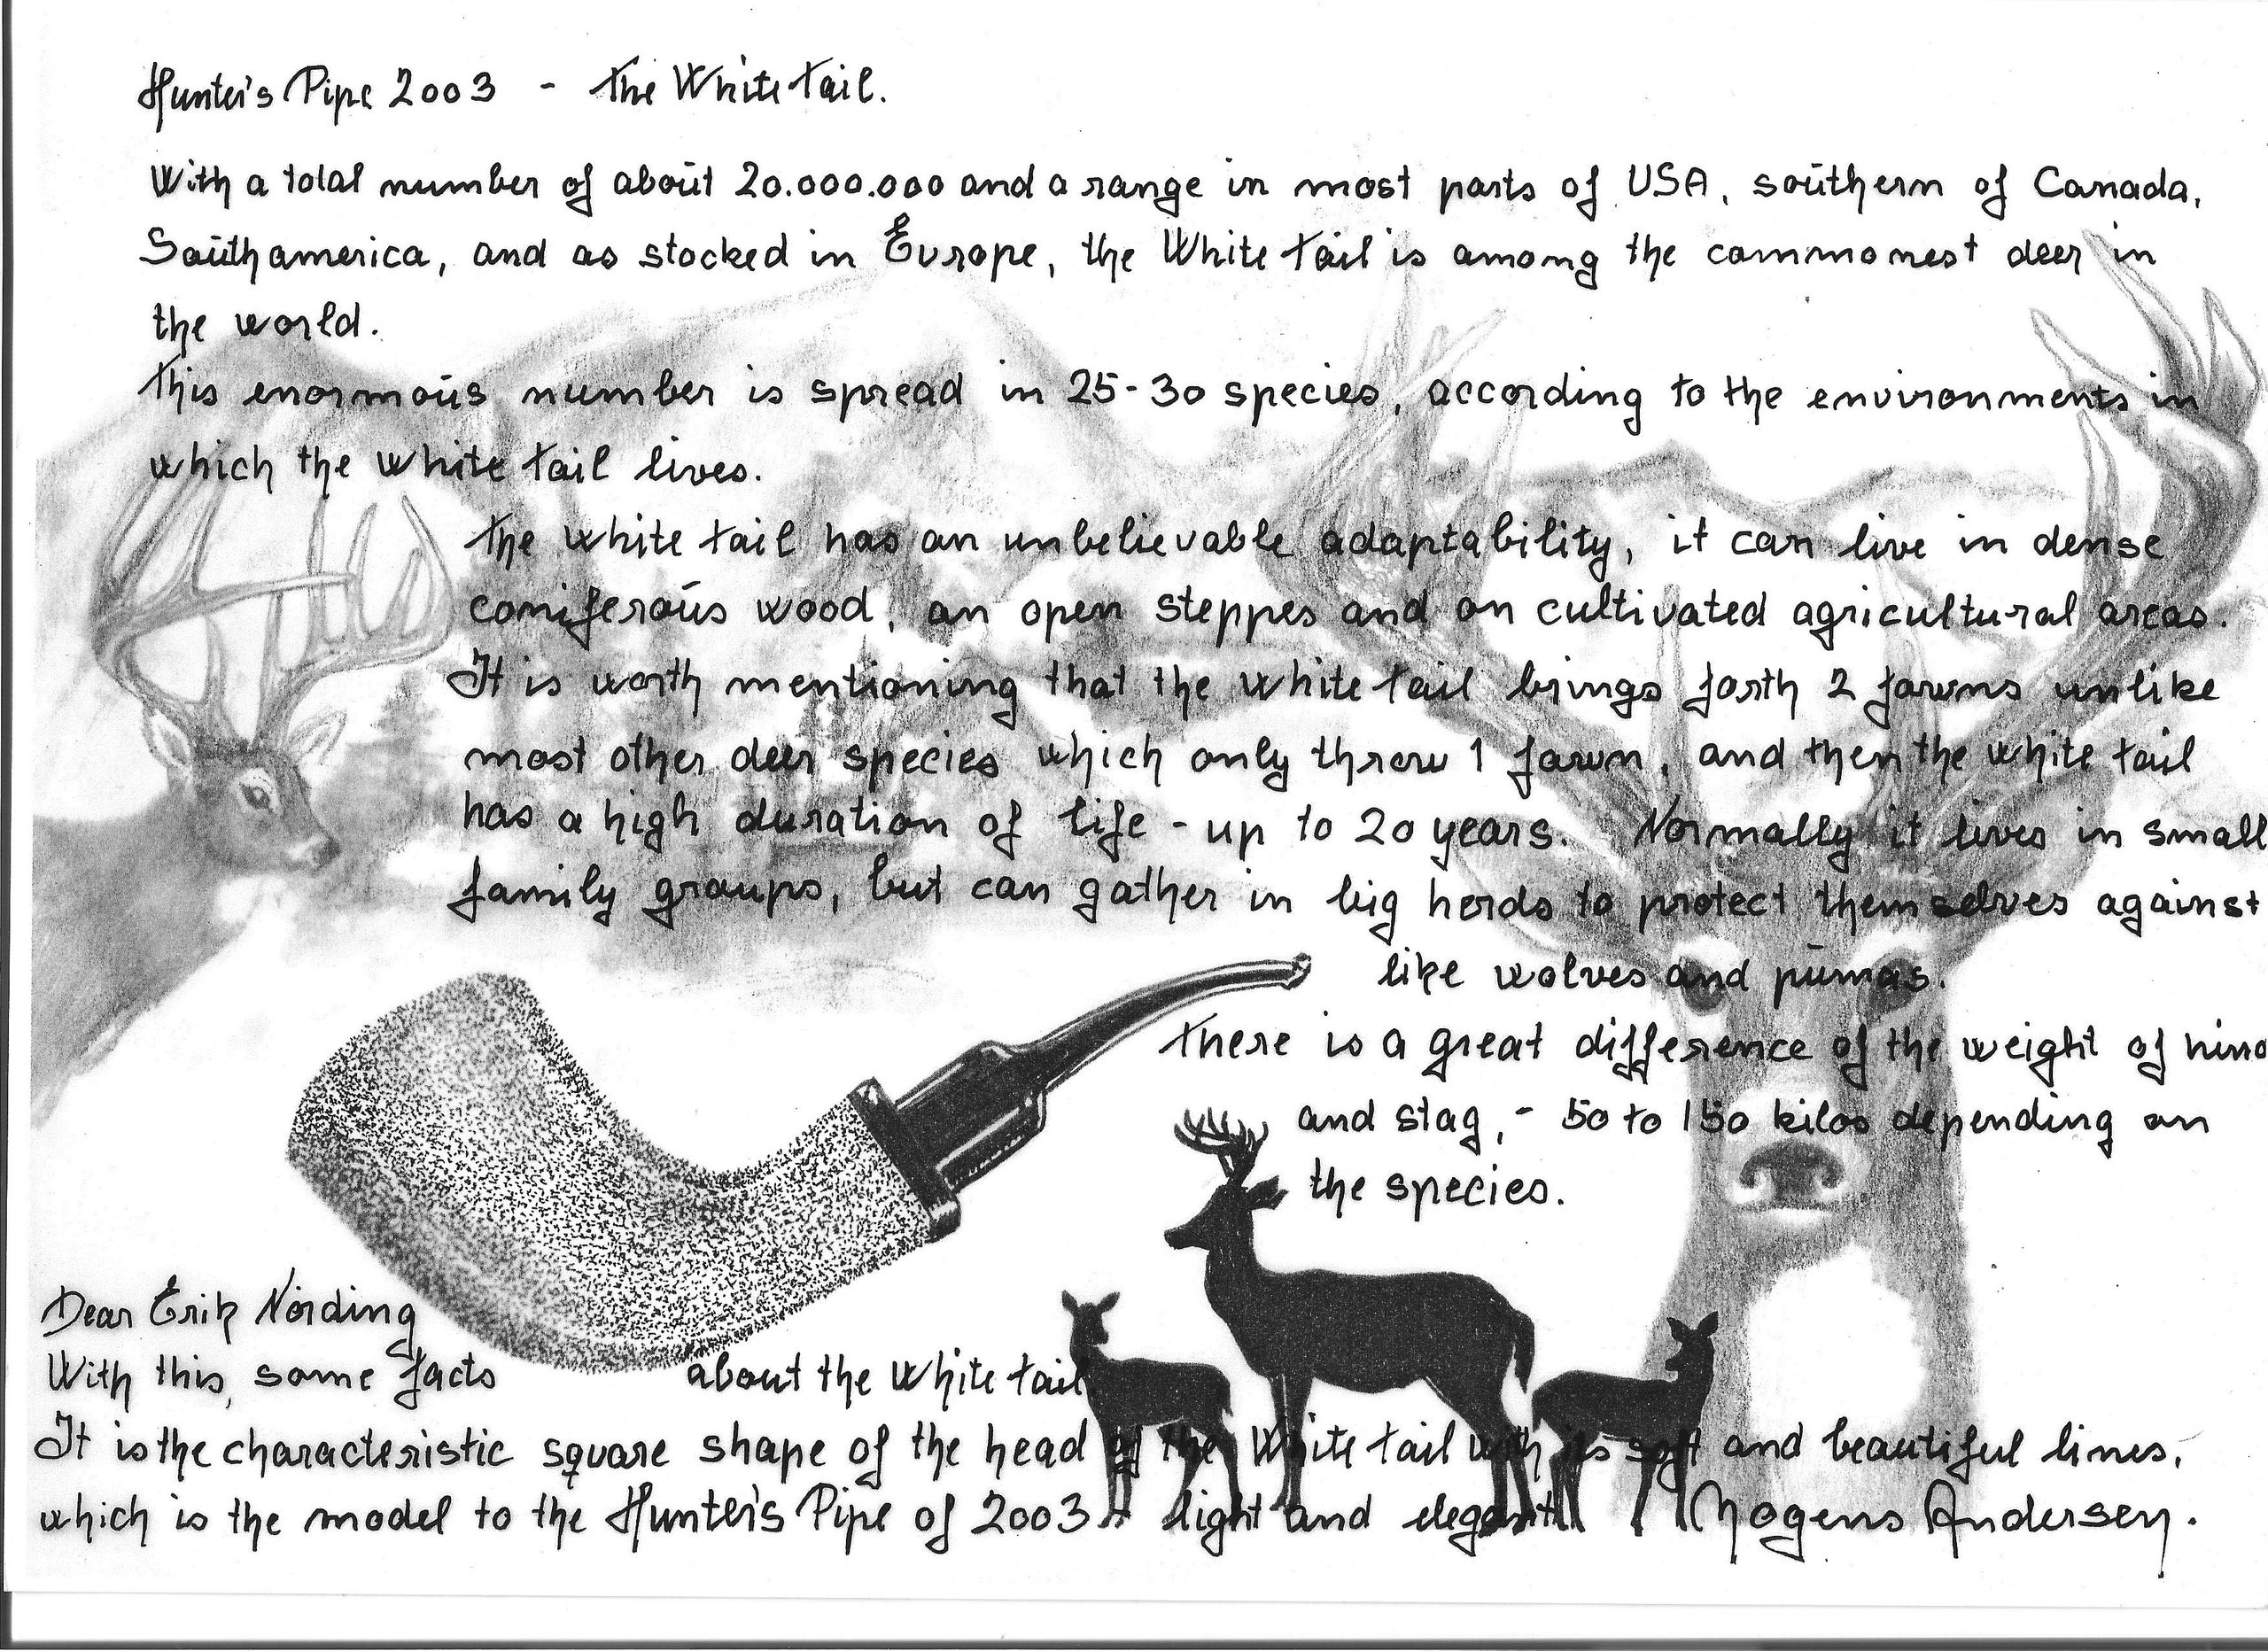 Hunter's Pipe 2003 - The White Tail.
With a total number of about 20.000.000 and a range in most parts of USA, southern of Canada,
Southamerica, and as stocked in Europe, the White Tail is among the commonest deer in
the world.
This enormous number is spread in 25-30 species, according to the environments in
which the white tail lives.
The white tail has an unbelievable adaptability, it can live in dense
coniferous wood, on open steppes and on cultivated agricultural areas.
It is worth mentioning that the white tail brings forth 2 fawns unlike
most other deer species which only throw 1 fawn, and then the white tail
has a high duration of life - up to 20 years. Normally it lives in small
family groups, but can gather in big herds to protect themselves against
like wolves and pumas.
There is a great difference of the weight of hind
and stag, - 50 to 150 kilos depending on
the species.
Dear Erik Nørding
With this, some facts about the white tail.
It is the characteristic square shape of the head of the White tail with its soft and beautiful lines,
which is the model to the Hunter's Pipe of 2003 - light and elegant. Mogens Andersen.